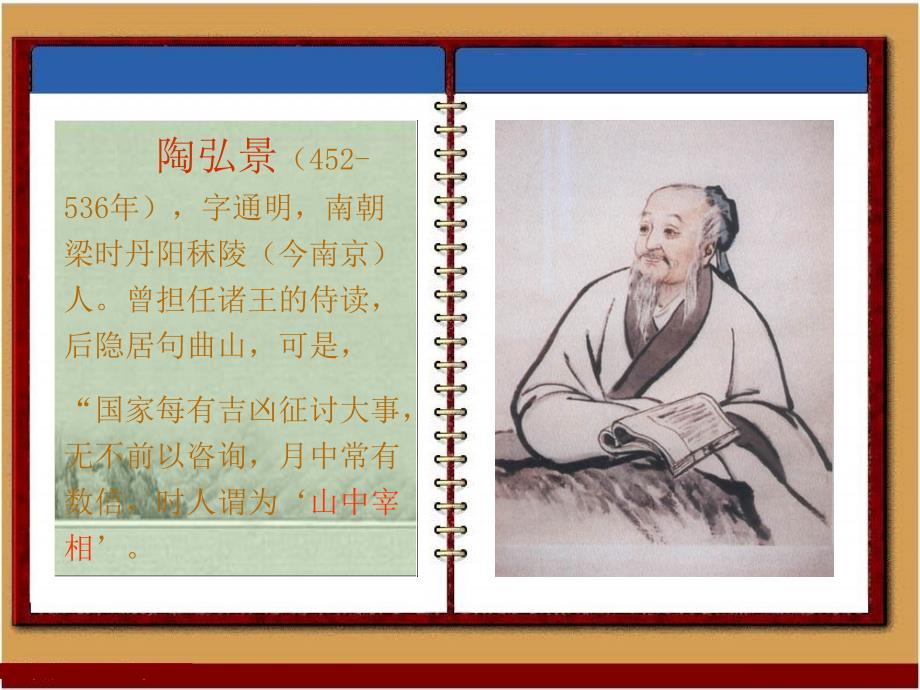 陶弘景（452-
536年），字通明，南朝
梁时丹阳秣陵（今南京）
人。曾担任诸王的侍读，
后隐居句曲山，可是，
“国家每有吉凶征讨大事，
无不前以咨询，月中常有
数信，时人谓为‘山中宰
相’。